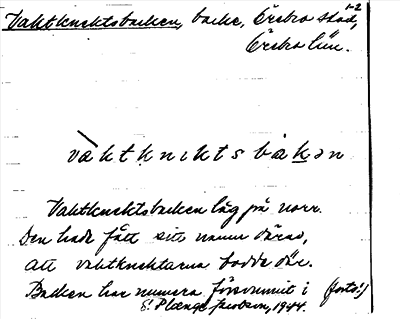 1-2
Vaktknektsbacken, backe, Örebro stad,
Örebro län.
vàktknıktsbákən
Vaktknektsbacken låg på norr.
Den hade fått sitt namn därav,
att vaktknektarna bodde där.
Backen har numera försvunnit i (forts!)
E. Plænge Jacobson, 1944.